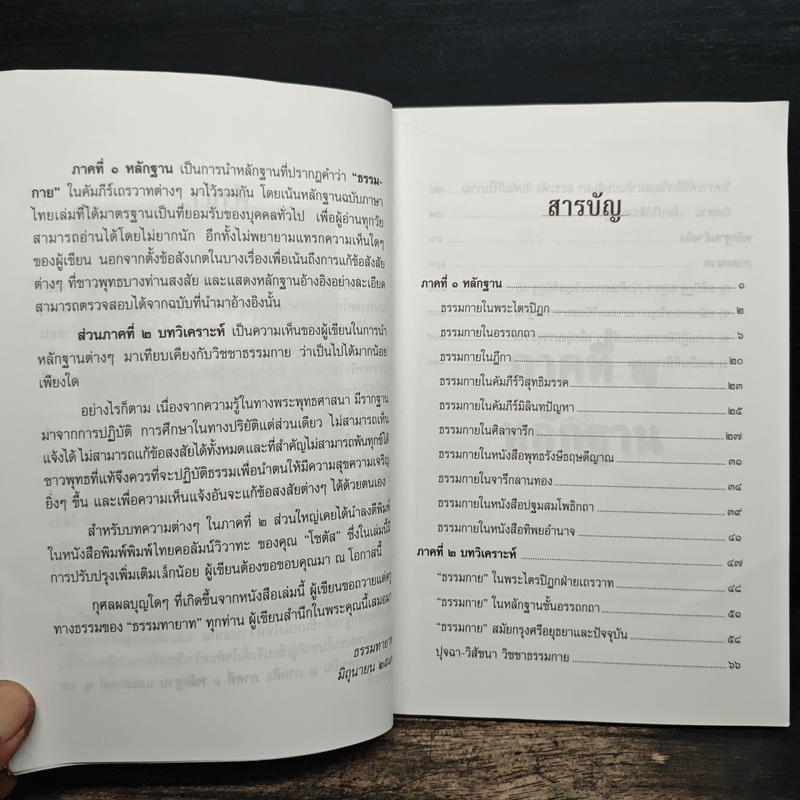 ภาคที่ ๑ หลักฐาน เป็นการนำหลักฐานที่ปรากฏคำว่า “ธรรม-
กาย” ในคัมภีร์เถรวาทต่างๆ มาไว้รวมกัน โดยเน้นหลักฐานฉบับภาษา
ไทยเล่มที่ได้มาตรฐานเป็นที่ยอมรับของบุคคลทั่วไป เพื่อผู้อ่านทุกวัย
สามารถอ่านได้โดยไม่ยากนัก อีกทั้งไม่พยายามแทรกความเห็นใดๆ
ของผู้เขียน นอกจากตั้งข้อสังเกตในบางเรื่องเพื่อเน้นการแก้ข้อสังสัย
ต่างๆ ที่ชาวพุทธบางท่านสงสัย และแสดงหลักฐานอ้างอิงอย่างละเอียด
สามารถตรวจสอบได้จากฉบับที่นำมาอ้างอิงนั้น
ส่วนภาคที่ ๒ บทวิเคราะห์ เป็นความเห็นของผู้เขียนในการนำ
หลักฐานต่างๆ มาเทียบเคียงกับวิชชาธรรมกาย ว่าเป็นไปได้มากน้อย
เพียงใด
อย่างไรก็ตาม เนื่องจากความรู้ในทางพระพุทธศาสนา มีรากฐาน
มาจากการปฏิบัติ การศึกษาในทางปริยัติแต่ส่วนเดียว ไม่สามารถเห็น
แจ้งได้ ไม่สามารถแก้ข้อสงสัยได้ทั้งหมดและที่สำคัญไม่สามารถพ้นทุกข์ได้
ชาวพุทธที่แท้จึงควรที่จะปฏิบัติธรรมเพื่อนำตนให้มีความสุขความเจริญ
ยิ่งๆ ขึ้น และเพื่อความเห็นแจ้งอันจะแก้ข้อสงสัยต่างๆ ได้ด้วยตนเอง
สำหรับบทความต่างๆ ในภาคที่ ๒ ส่วนใหญ่เคยได้นำลงตีพิมพ์
ในหนังสือพิมพ์พิมพ์ไทยคอลัมน์วิวาทะ ของคุณ “โชตัส” ซึ่งในเล่มนี้มี
การปรับปรุงเพิ่มเติมเล็กน้อย ผู้เขียนต้องขอขอบคุณมา ณ โอกาสนี้
กุศลผลบุญใดๆ ที่เกิดขึ้นจากหนังสือเล่มนี้ ผู้เขียนขอถวายแด่ครู
ทางธรรมของ “ธรรมทายาท” ทุกท่าน ผู้เขียนสำนึกในพระคุณนี้เสมอมา
ธรรมทายาท
มิถุนายน
สารบัญ
ภาคที่ ๑ หลักฐาน ๑
ธรรมกายในพระไตรปิฎก ๒
ธรรมกายในอรรถกถา ๖
ธรรมกายในฎีกา ๒๐
ธรรมกายในคัมภีร์วิสุทธิมรรค ๒๓
ธรรมกายในคัมภีร์มิลินทปัญหา ๒๕
ธรรมกายในศิลาจารึก ๒๗
ธรรมกายในหนังสือพุทธรังษีธฤษดีญาณ ๓๑
ธรรมกายในจารึกลานทอง ๓๔
ธรรมกายในหนังสือปฐมสมโพธิกถา ๓๙
ธรรมกายในหนังสือทิพยอำนาจ ๔๑
ภาคที่ ๒ บทวิเคราะห์ ๔๗
“ธรรมกาย” ในพระไตรปิฎกฝ่ายเถรวาท ๔๘
“ธรรมกาย” ในหลักฐานชั้นอรรถกถา ๕๑
“ธรรมกาย” สมัยกรุงศรีอยุธยาและปัจจุบัน ๕๔
ปุจฉา-วิสัชนา วิชชาธรรมกาย ๖๖